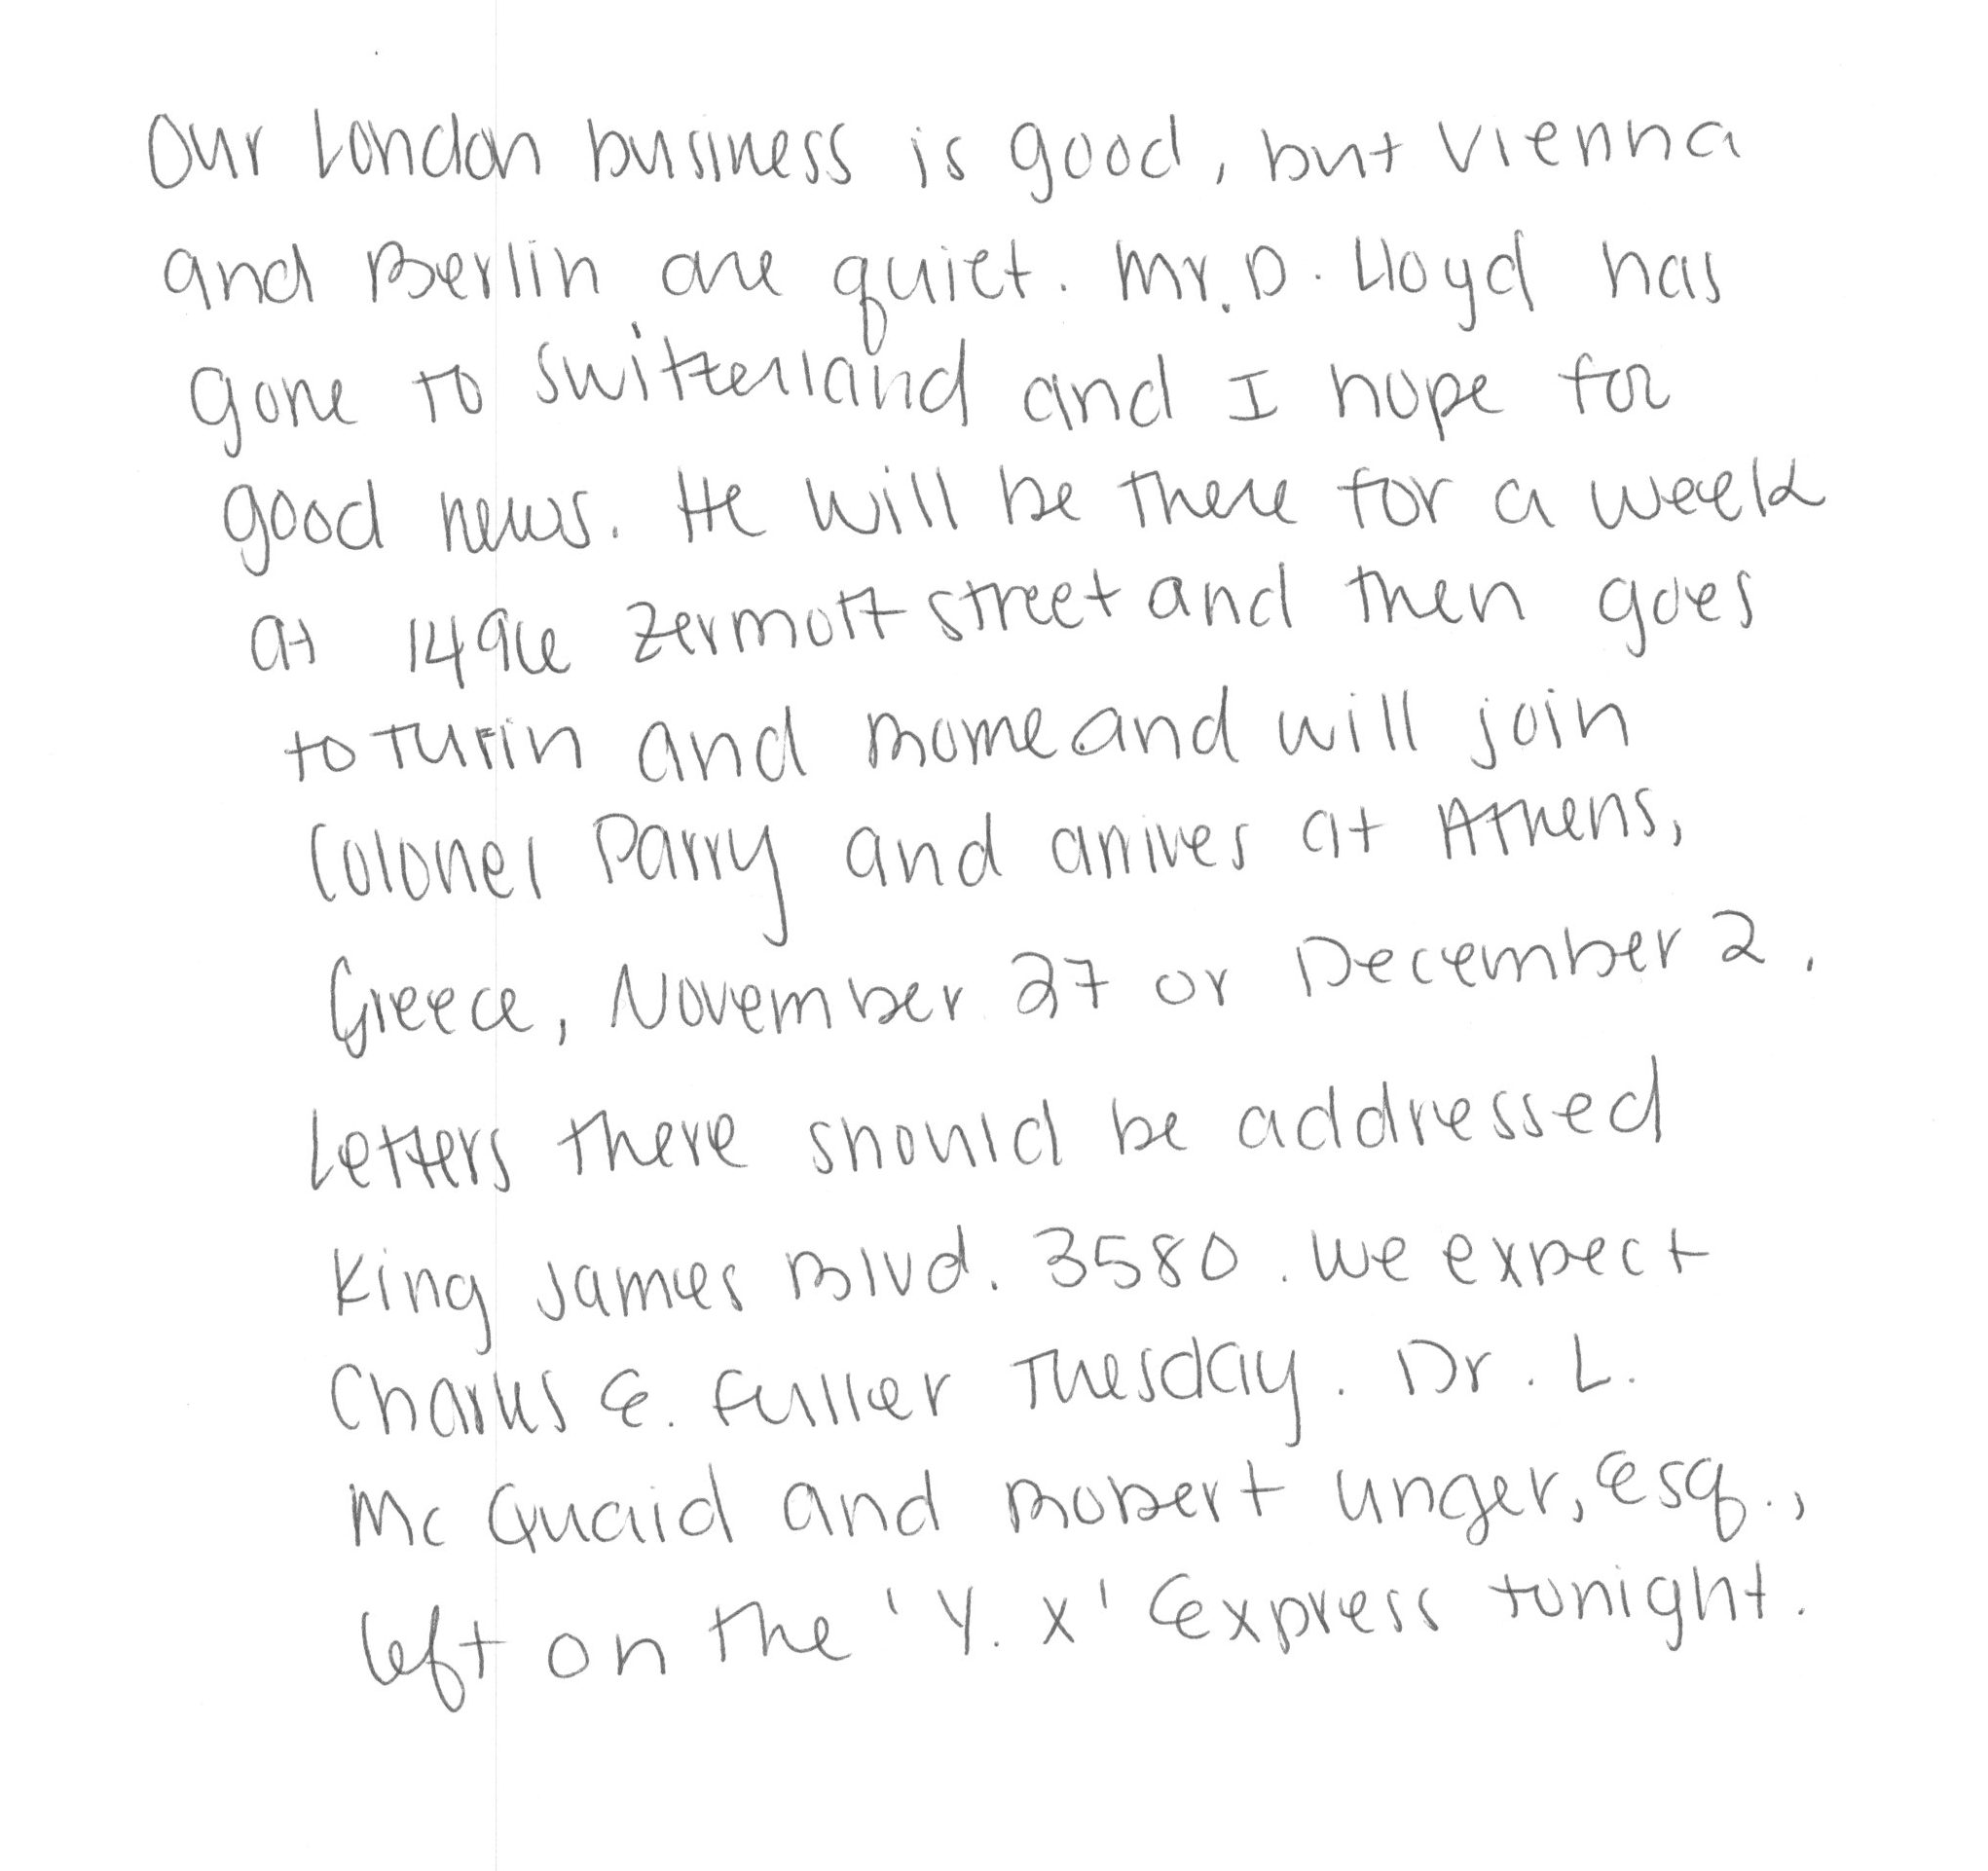 Our London business is good, but Vienna
and Berlin are quiet. Mr. D. Lloyd has
gone to Switzerland and I hope for
good news. He will be there for a week
at 1496 Zermott Street and then goes
to Turin and Rome and will join
Colonel Parry and arrives at Athens,
Greece, November 27 or December 2.
Letters there should be addressed
King James Blvd. 3580. We expect
Charles E. Fuller Tuesday. Dr. L.
McQuaid and Robert Unger, Esq.,
left on the 'Y. X' Express tonight.